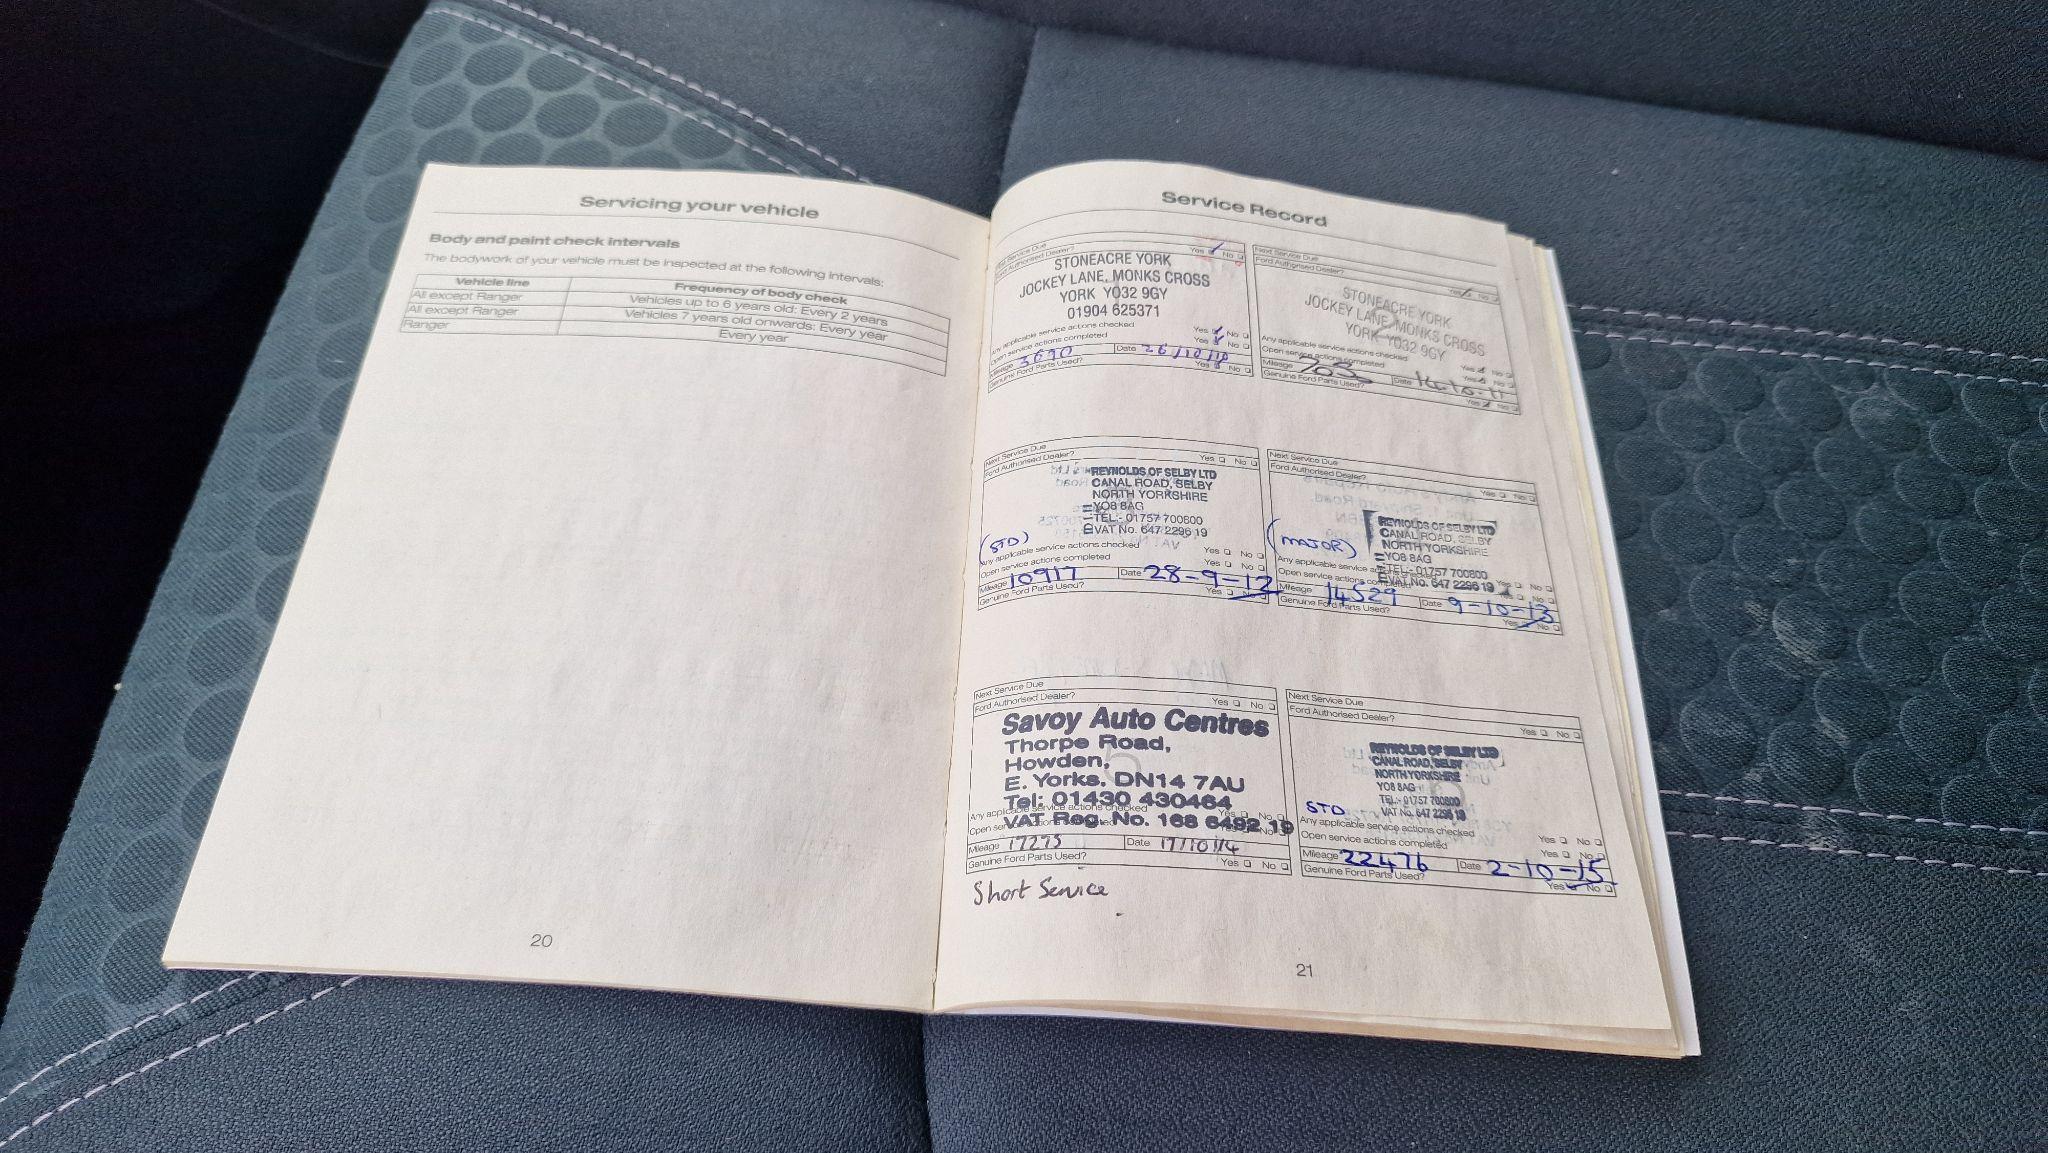 Servicing your vehicle
Body and paint check intervals
The bodywork of your vehicle must be inspected at the following intervals:
Vehicle line Frequency of body check
All except Ranger Vehicles up to 6 years old: Every 2 years
All except Ranger Vehicles 7 years old onwards: Every year
Ranger Every year
20
Service Record
Next Service Due
Ford Authorised Dealer? Yes No
STONEACRE YORK
JOCKEY LANE, MONKS CROSS
YORK YO32 9GY
01904 625371
Any applicable service actions checked Yes No
Open service actions completed Yes No
Mileage 3690 Date 26/10/10
Genuine Ford Parts Used? Yes No
Next Service Due
Ford Authorised Dealer? Yes No
STONEACRE YORK
JOCKEY LANE, MONKS CROSS
YORK YO32 9GY
Any applicable service actions checked Yes No
Open service actions completed Yes No
Mileage Date
Genuine Ford Parts Used? Yes No
Next Service Due
Ford Authorised Dealer? Yes No
REYNOLDS OF SELBY LTD
CANAL ROAD, SELBY
NORTH YORKSHIRE
YO8 8AG
TEL:- 01757 700800
VAT No. 647 2296 19
(STD)
Any applicable service actions checked Yes No
Open service actions completed Yes No
Mileage 10917 Date 28-9-12
Genuine Ford Parts Used? Yes No
Next Service Due
Ford Authorised Dealer? Yes No
REYNOLDS OF SELBY LTD
CANAL ROAD, SELBY
NORTH YORKSHIRE
YO8 8AG
TEL:- 01757 700800
VAT No. 647 2296 19
(MAJOR)
Any applicable service actions checked Yes No
Open service actions completed Yes No
Mileage 14529 Date 9-10-13
Genuine Ford Parts Used? Yes No
Next Service Due
Ford Authorised Dealer? Yes No
Savoy Auto Centres
Thorpe Road,
Howden,
E. Yorks. DN14 7AU
Tel: 01430 430464
Any applicable service actions checked Yes No
VAT Reg. No. 168 6492 19
Open service actions completed Yes No
Mileage 17275 Date 17/10/14
Genuine Ford Parts Used? Yes No
Short Service
Next Service Due
Ford Authorised Dealer? Yes No
REYNOLDS OF SELBY LTD
CANAL ROAD, SELBY
NORTH YORKSHIRE
YO8 8AG
TEL:- 01757 700800
VAT No. 647 2296 19
STD
Any applicable service actions checked Yes No
Open service actions completed Yes No
Mileage 22476 Date 2-10-15
Genuine Ford Parts Used? Yes No
21